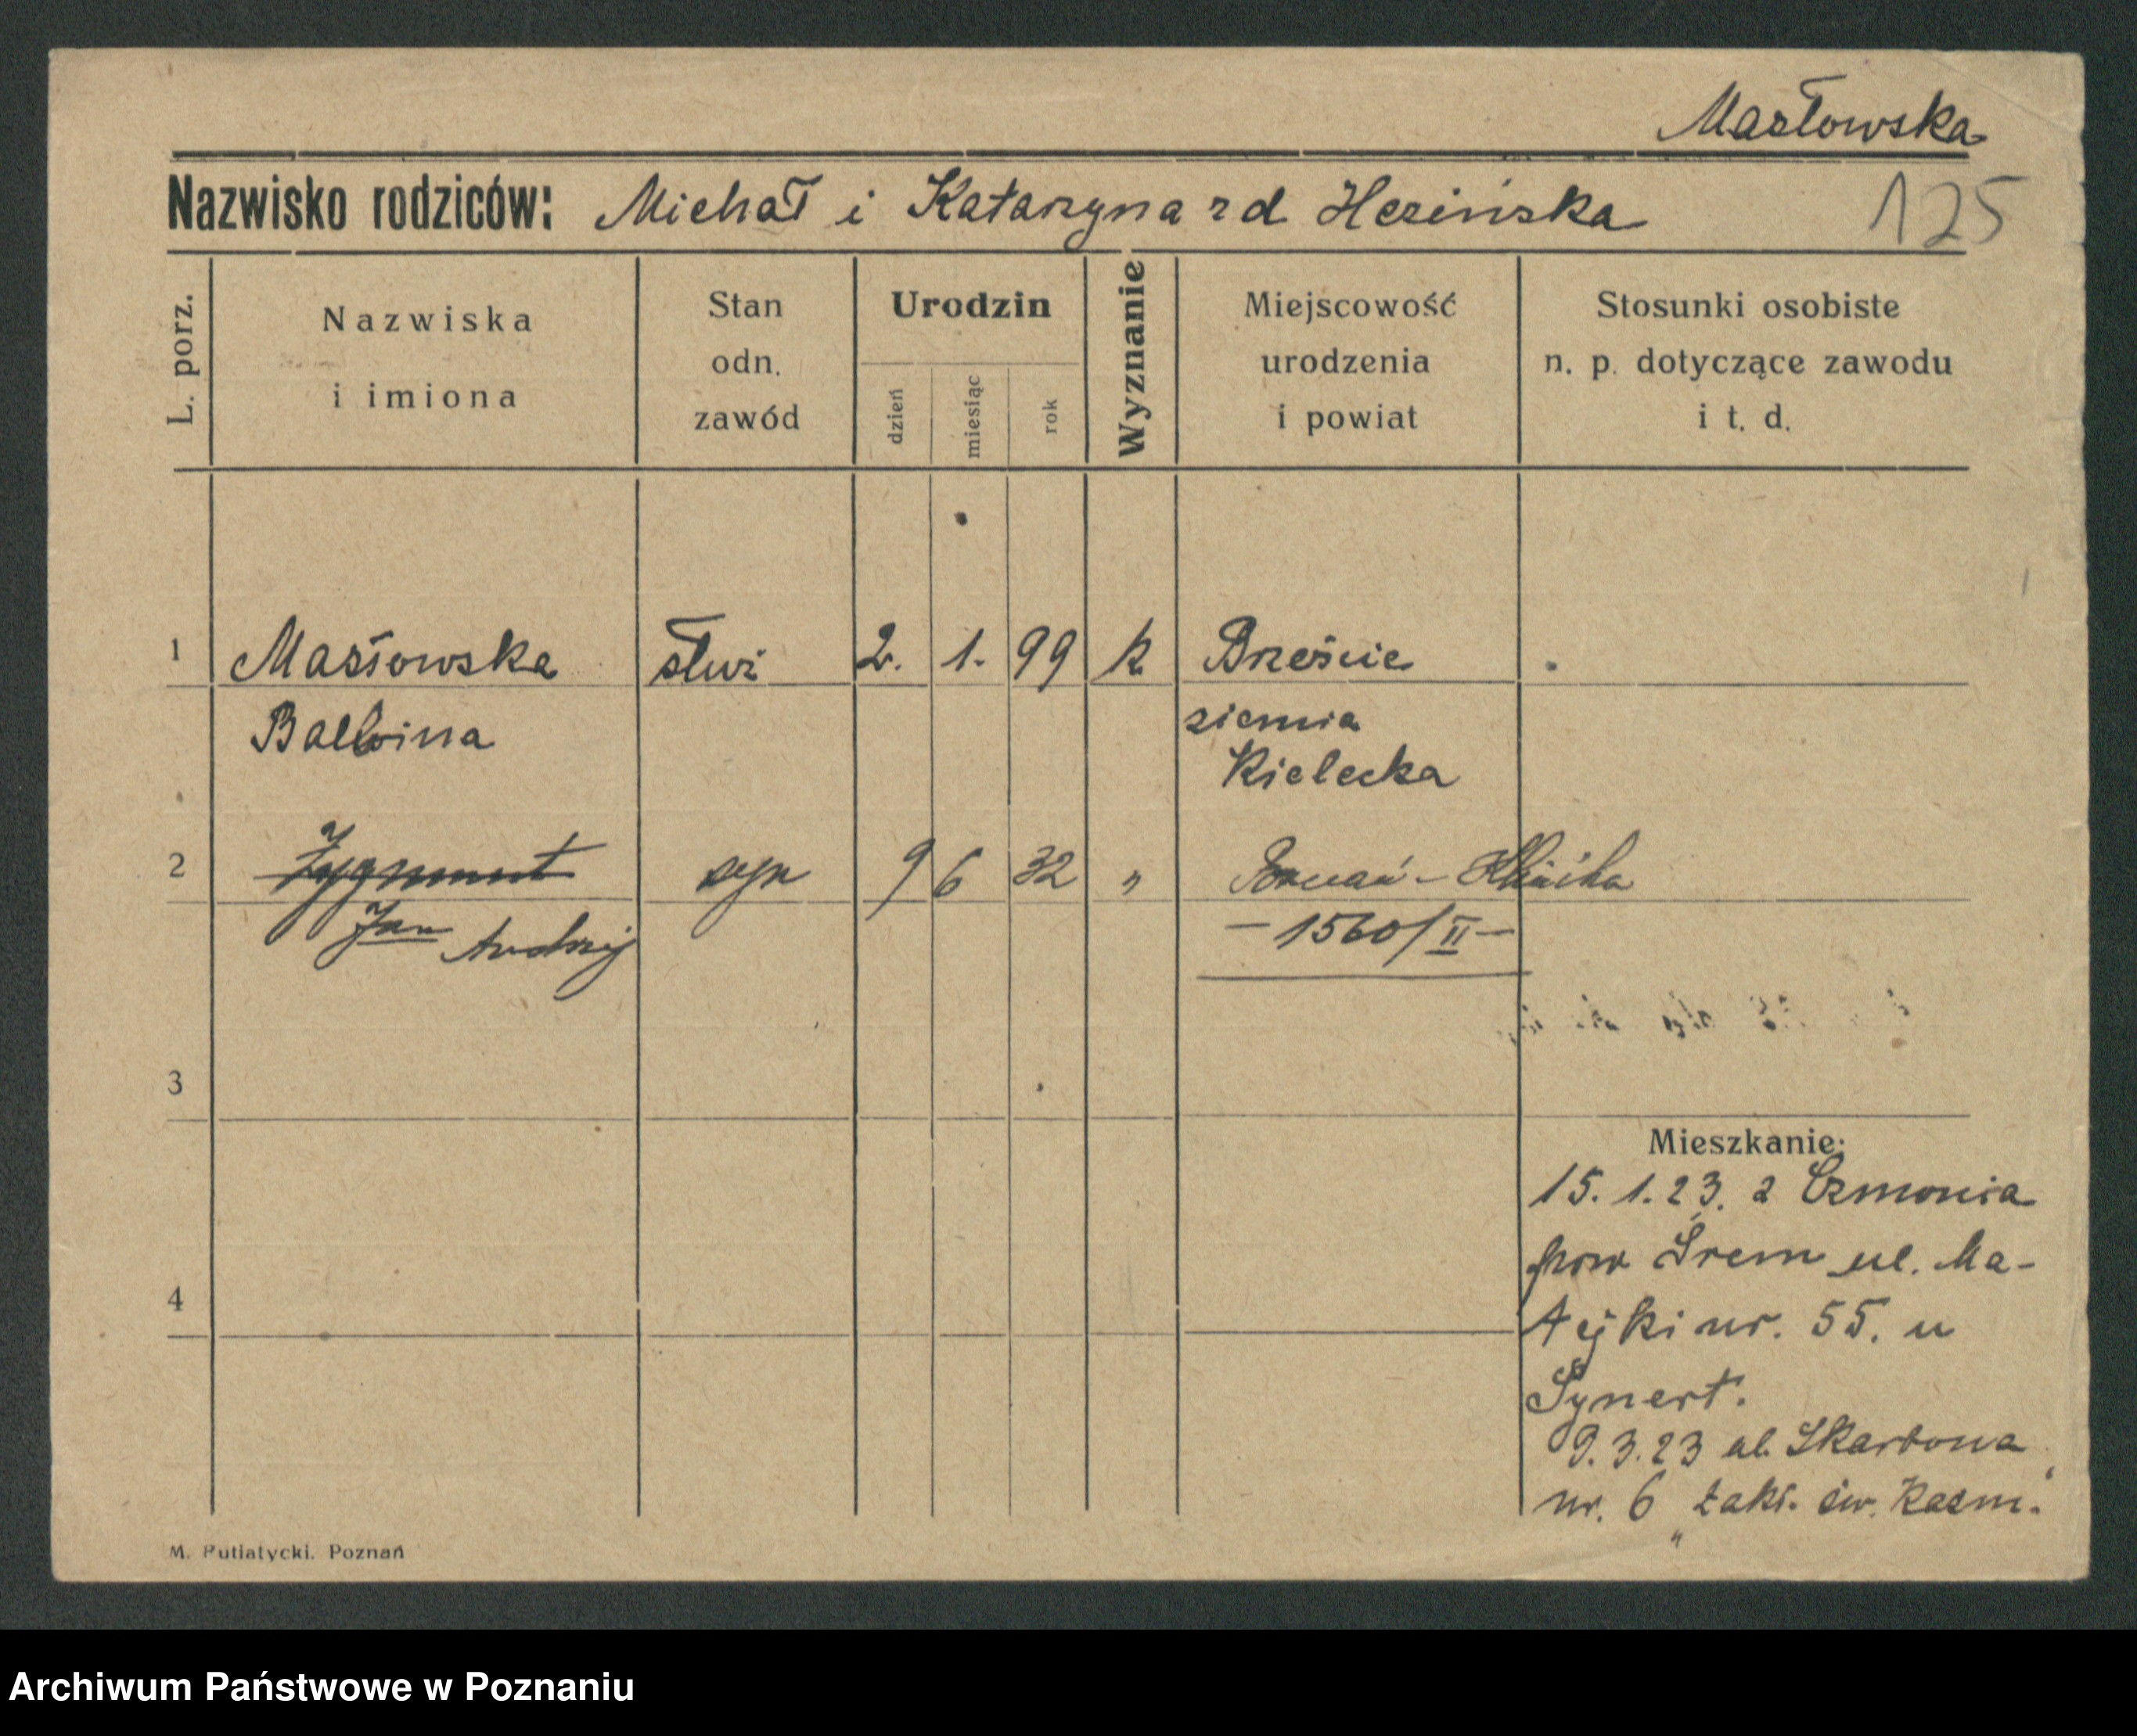 Masłowska
Nazwisko rodziców: Michał i Katarzyna zd Hezińska
125
L. porz.
Nazwiska
i imiona
Stan
odn.
zawód
Urodzin
dzień
miesiąc
rok
Wyznanie
Miejscowość
urodzenia
i powiat
Stosunki osobiste
n. p. dotyczące zawodu
i t. d.
1 Masłowska służ 2. 1. 99 k Brzeście
Balbina
ziemia
Kielecka
2 Zygmunt syn 9 6 32 " Poznań - Klinika
Jan Andrzej
- 1560/II -
3
Mieszkanie:
15. 1. 23. z Czmonia
pow Śrem ul. Ma-
4
tejki nr. 55. u
Synert.
9. 3. 23 ul. Skarbowa
nr. 6 „zakł. św. Kazm.“
M. Putiatycki. Poznań
Archiwum Państwowe w Poznaniu